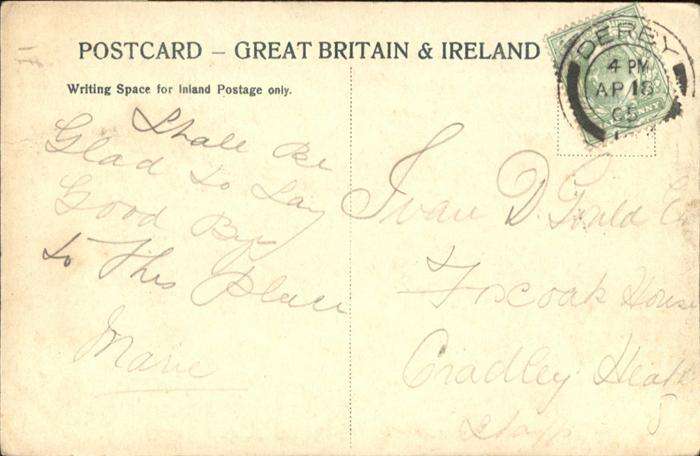 POSTCARD – GREAT BRITAIN & IRELAND
Writing Space for Inland Postage only.
DERBY
4 PM
AP 18
05
Shall Be
Glad to Say
Good Bye
to This Place
Marie
Ivan D. Gould
Foxoak House
Cradley Heath
Staffs